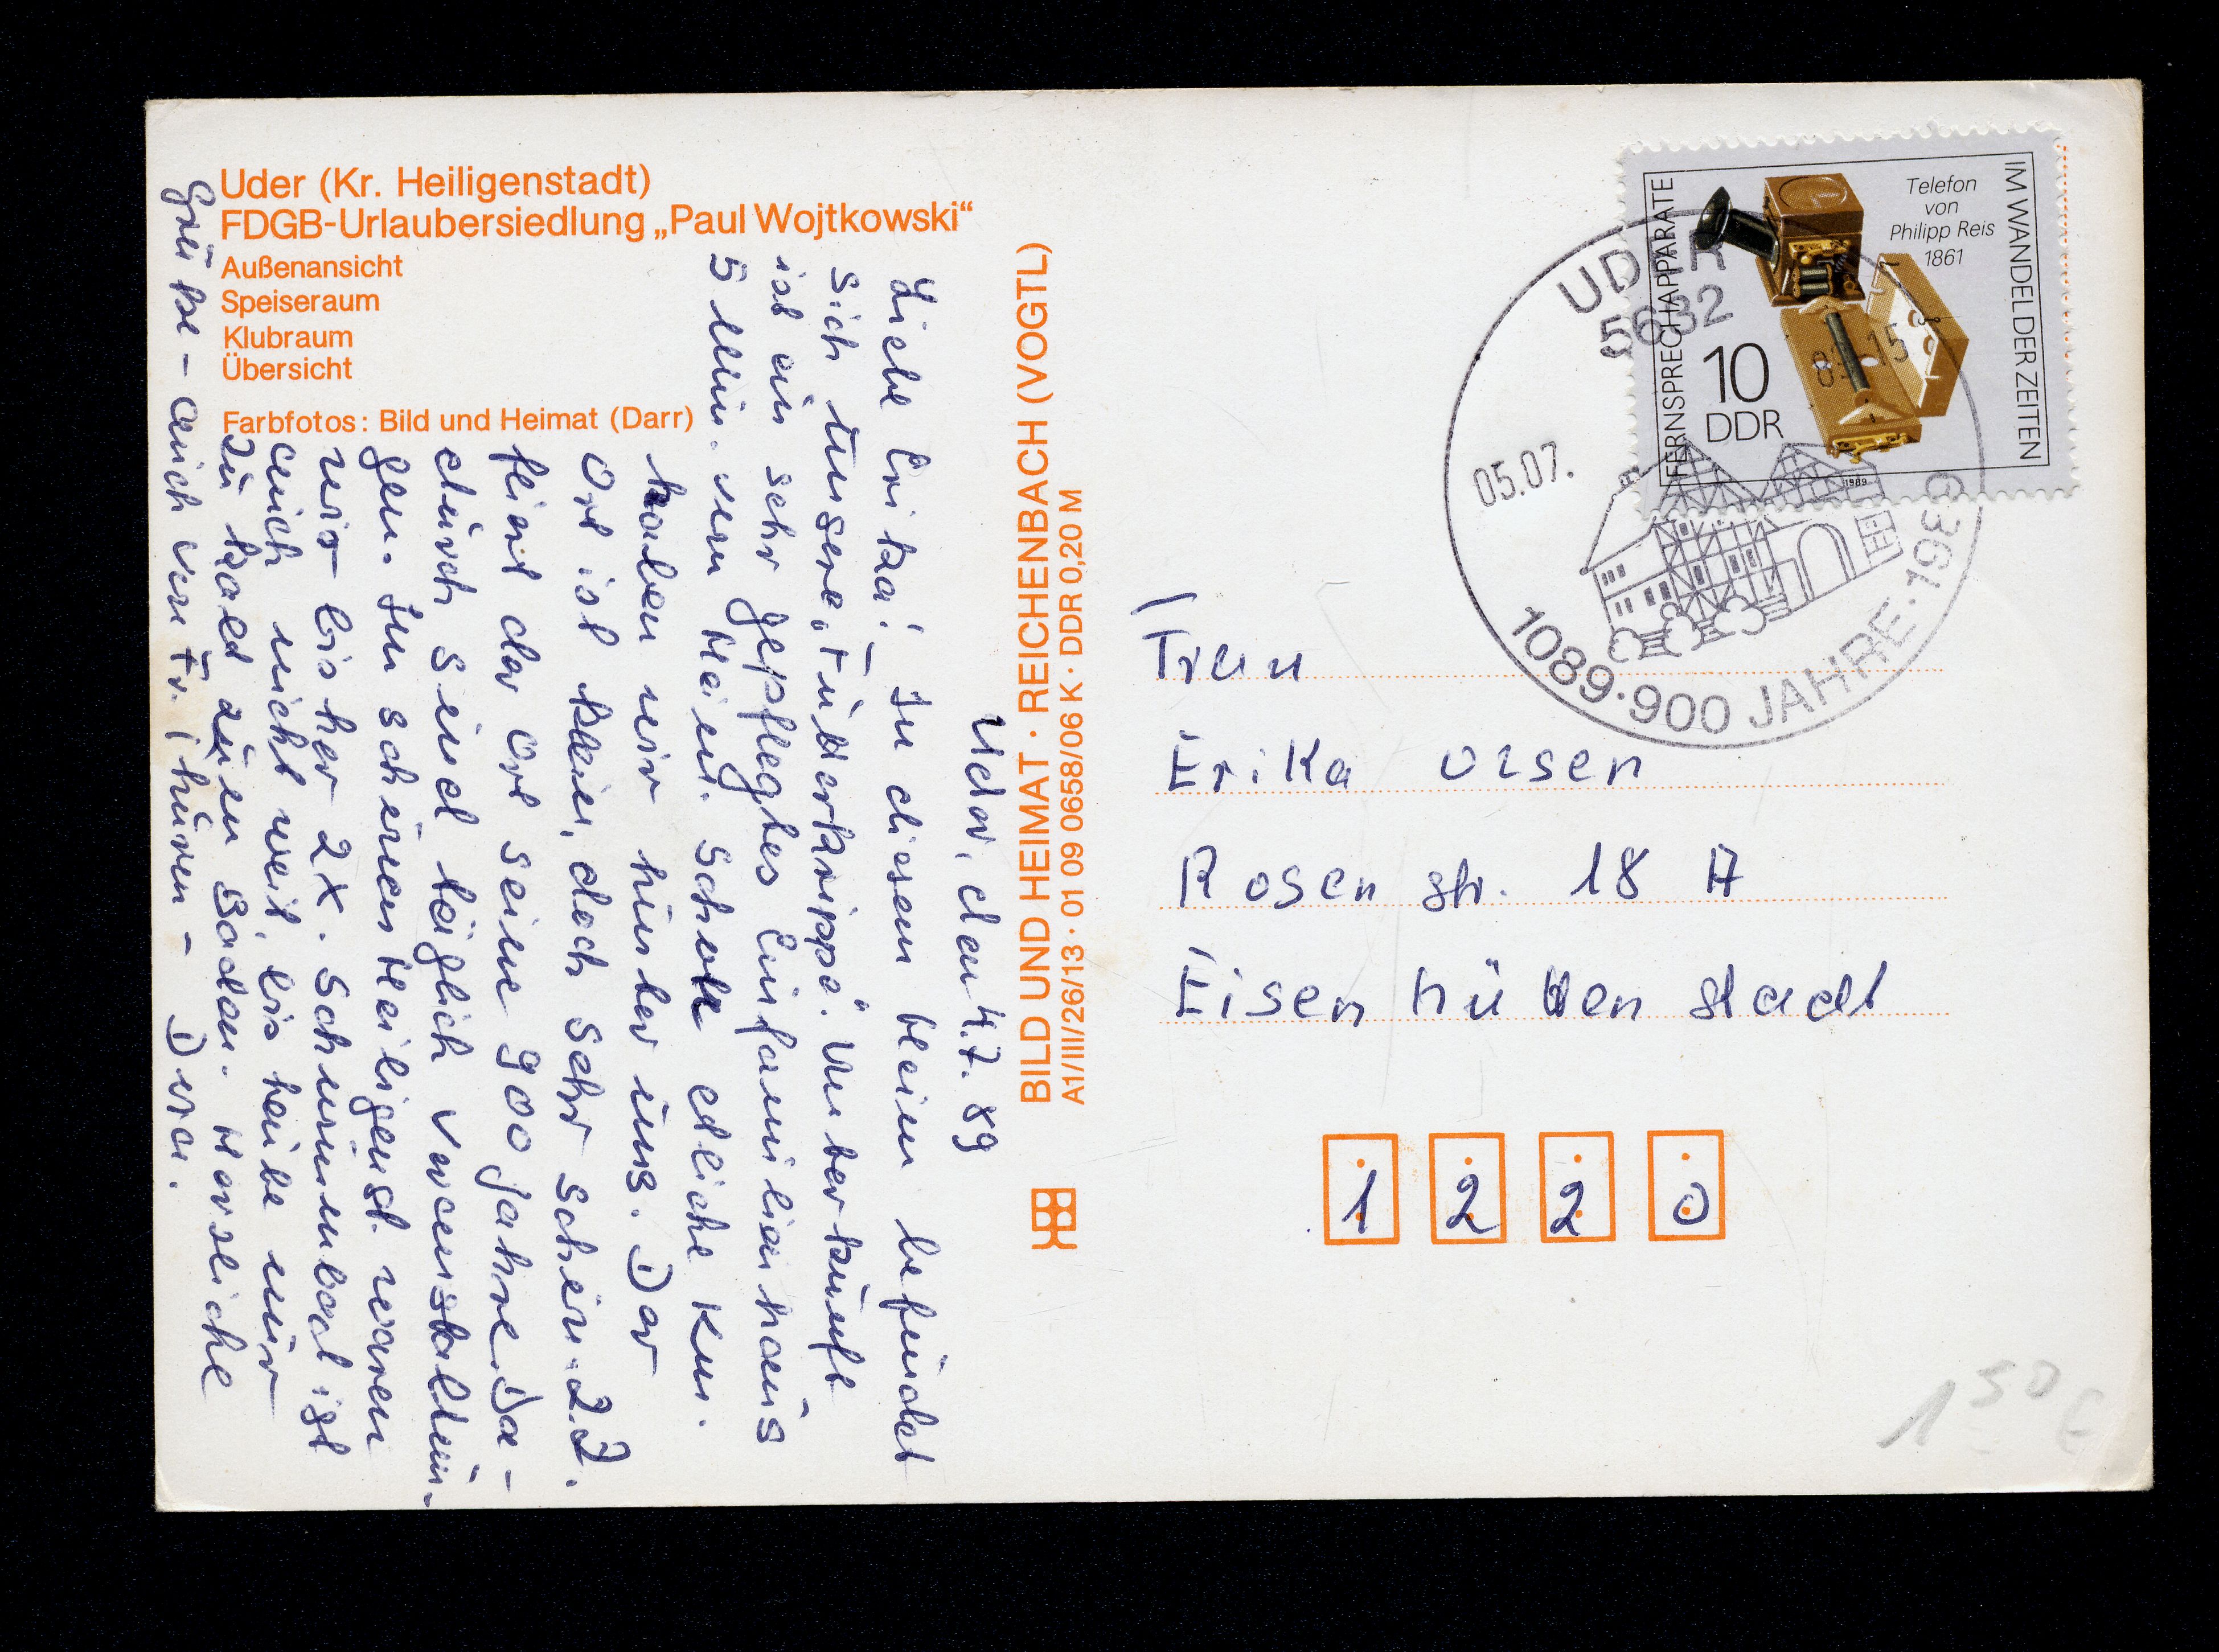 Uder (Kr. Heiligenstadt)
FDGB-Urlaubersiedlung „Paul Wojtkowski“
Außenansicht
Speiseraum
Klubraum
Übersicht
Farbfotos: Bild und Heimat (Darr)
Uder, den 4.7.89
Liebe Erika! In diesem Heim befindet
sich unsere „Futterkrippe“. Unterkunft
ist ein sehr gepflegtes Einfamilienhaus
5 Min. vom Heim. Schon etliche Km.
haben wir hinter uns. Der
Ort ist klein, doch sehr schön. Z.Z.
feiert der Ort seine 900 Jahre. Da-
durch sind täglich Veranstaltun-
gen. Im schönen Heiligenst. waren
wir bisher 2x. Schwimmbad ist
auch nicht weit, bis heute nur
zu kalt zum Baden. Herzliche
Grüße – auch von Fr.
BILD UND HEIMAT · REICHENBACH (VOGTL)
A1/III/26/13 · 01 09 0658/06 K · DDR 0,20 M
FERNSPRECHAPPARATE
IM WANDEL DER ZEITEN
Telefon
von
Philipp Reis
1861
10
DDR
1989
UDER
5632
05.07.
89 15
1089 · 900 JAHRE · 1989
Frau
Erika
Rosenstr. 18 A
Eisenhüttenstadt
1 2 2 0
1 50 €